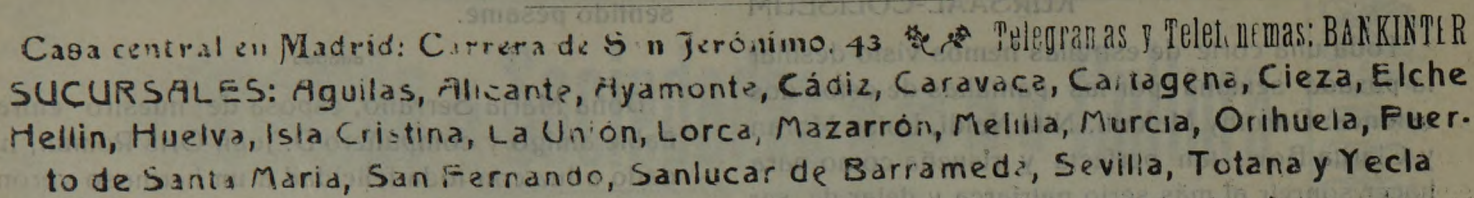 Casa central en Madrid: Carrera de San Jerónimo, 43 Telegramas y Telefonemas: BANKINTER
SUCURSALES: Aguilas, Alicante, Ayamonte, Cádiz, Caravaca, Cartagena, Cieza, Elche
Hellin, Huelva, Isla Cristina, La Unión, Lorca, Mazarrón, Melilla, Murcia, Orihuela, Puer-
to de Santa Maria, San Fernando, Sanlucar de Barrameda, Sevilla, Totana y Yecla